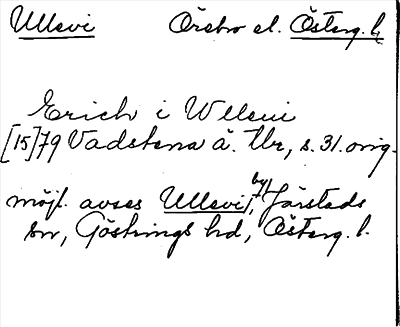 Ullevi Örebro el. Österg. l.
Erich i Wlleui
[15]79 Vadstena ä. tbr, s. 31. orig.
möjl. avses Ullevi, by, Järstads
sn, Göstrings hd, Österg. l.